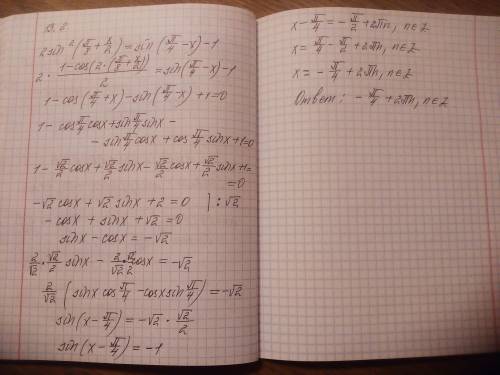 13. 2
2sin²(π/8 + x/2) = sin(π/4 − x) − 1
2 · (1−cos(2·(π/8 + x/2)))/2 = sin(π/4 − x) − 1
1 − cos(π/4 + x) − sin(π/4 − x) + 1 = 0
1 − cos π/4 cosx + sin π/4 sinx −
− sin π/4 cosx + cos π/4 sinx + 1 = 0
1 − √2/2 cosx + √2/2 sinx − √2/2 cosx + √2/2 sinx + 1 =
= 0
−√2 cosx + √2 sinx + 2 = 0 | : √2
− cosx + sinx + √2 = 0
sinx − cosx = −√2
2/√2 · √2/2 sinx − 2/√2 · √2/2 cosx = −√2
2/√2 (sinx cos π/4 − cosx sin π/4) = −√2
sin(x − π/4) = −√2 · √2/2
sin(x − π/4) = −1
x − π/4 = − π/2 + 2πn, n∈Z
x = π/4 − π/2 + 2πn, n∈Z
x = − π/4 + 2πn, n∈Z
Ответ: − π/4 + 2πn, n∈Z